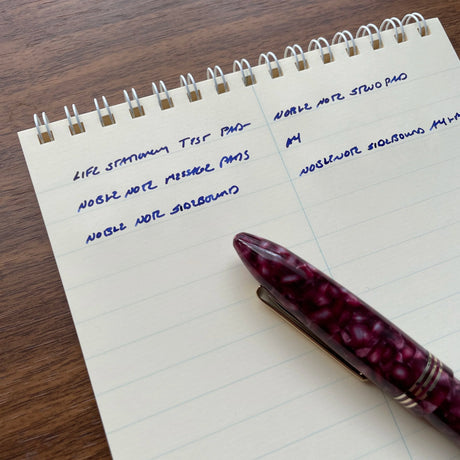 LIFE STATIONERY TEST PAD-
NOBLE NOTE MESSAGE PADS
NOBLE NOTE SIDEBOUND
NOBLE NOTE STENO PAD
NOBLE NOTE SIDEBOUND